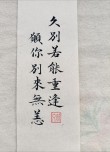 久別若能重逢
願你別來無恙